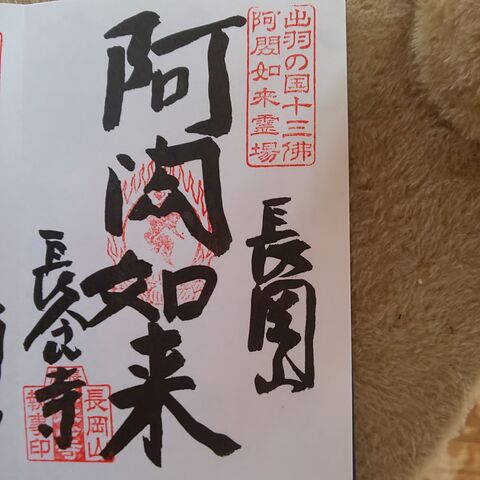 出羽の国十三佛
阿閦如来霊場
長岡山
阿閦如来
長念寺
長岡山
執事印